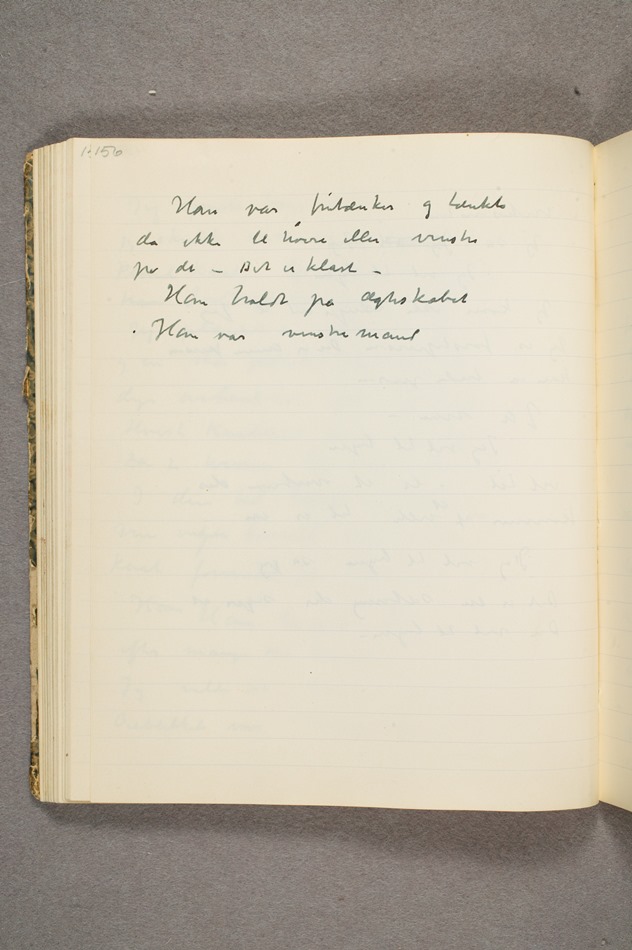 1.150
Han var fritænker og tænkte
da ikke til høire eller venstre
for de – Det er klart –
Han holdt på ægteskabet
. Han var venstremand